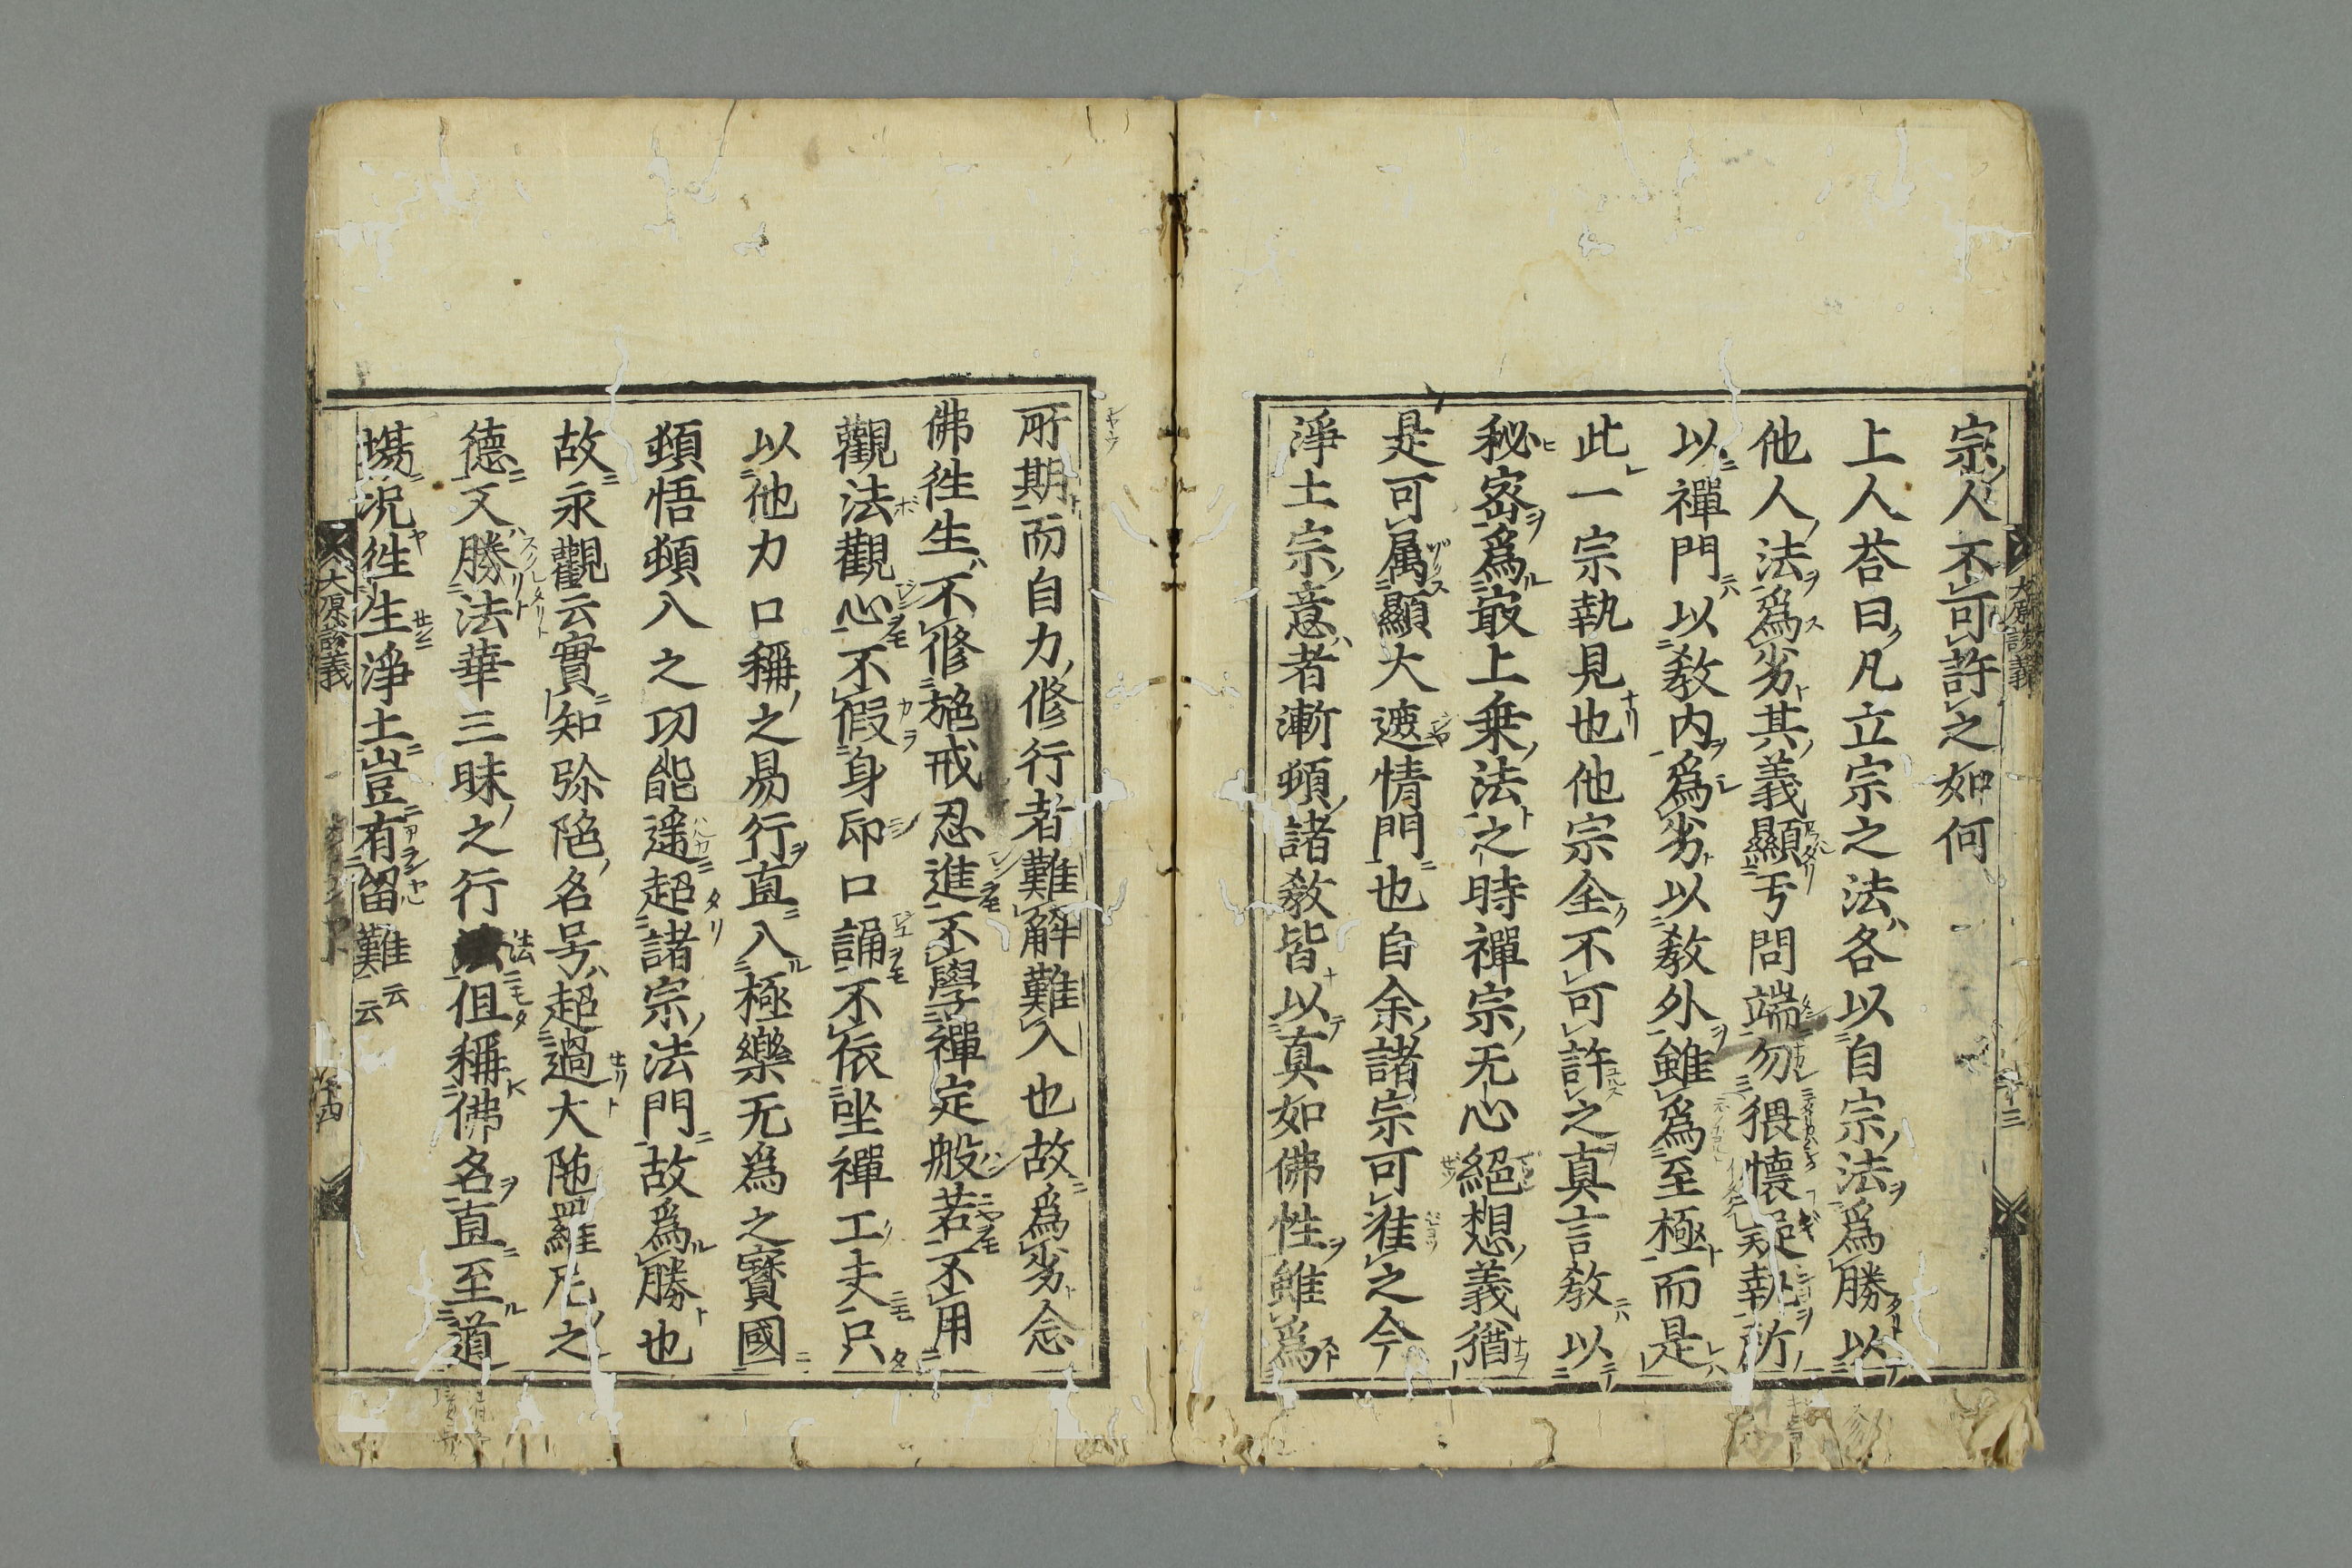 宗人不可許之如何
上人荅曰凡立宗之法各以自宗法爲勝以
他人法爲劣其義顯亐問端勿猥懐疑執所
以禪門以敎内爲劣以敎外雖爲至極而是
此一宗執見也他宗全不可許之真言敎以
秘宻爲㝡上乗法之時禪宗无心絕想義猶
是可属顯大遮情門也自余諸宗可准之今
淨土宗意者漸頓諸敎皆以真如佛性雖爲
所期而自力修行者難解難入也故爲劣念
佛徃生不修施戒忍進不學禪定般若不用
觀法觀心不假身印口誦不依坐禪工夫只
以他力口稱之易行直入極樂无爲之寳國
頓悟頓入之功能遥超諸宗法門故爲勝也
故永觀云實知弥陁名号超過大陁羅尼之
德又勝法華三昧之行法伹稱佛名直至道
塲况徃生淨土豈有留難云云
大原談義
大原談義